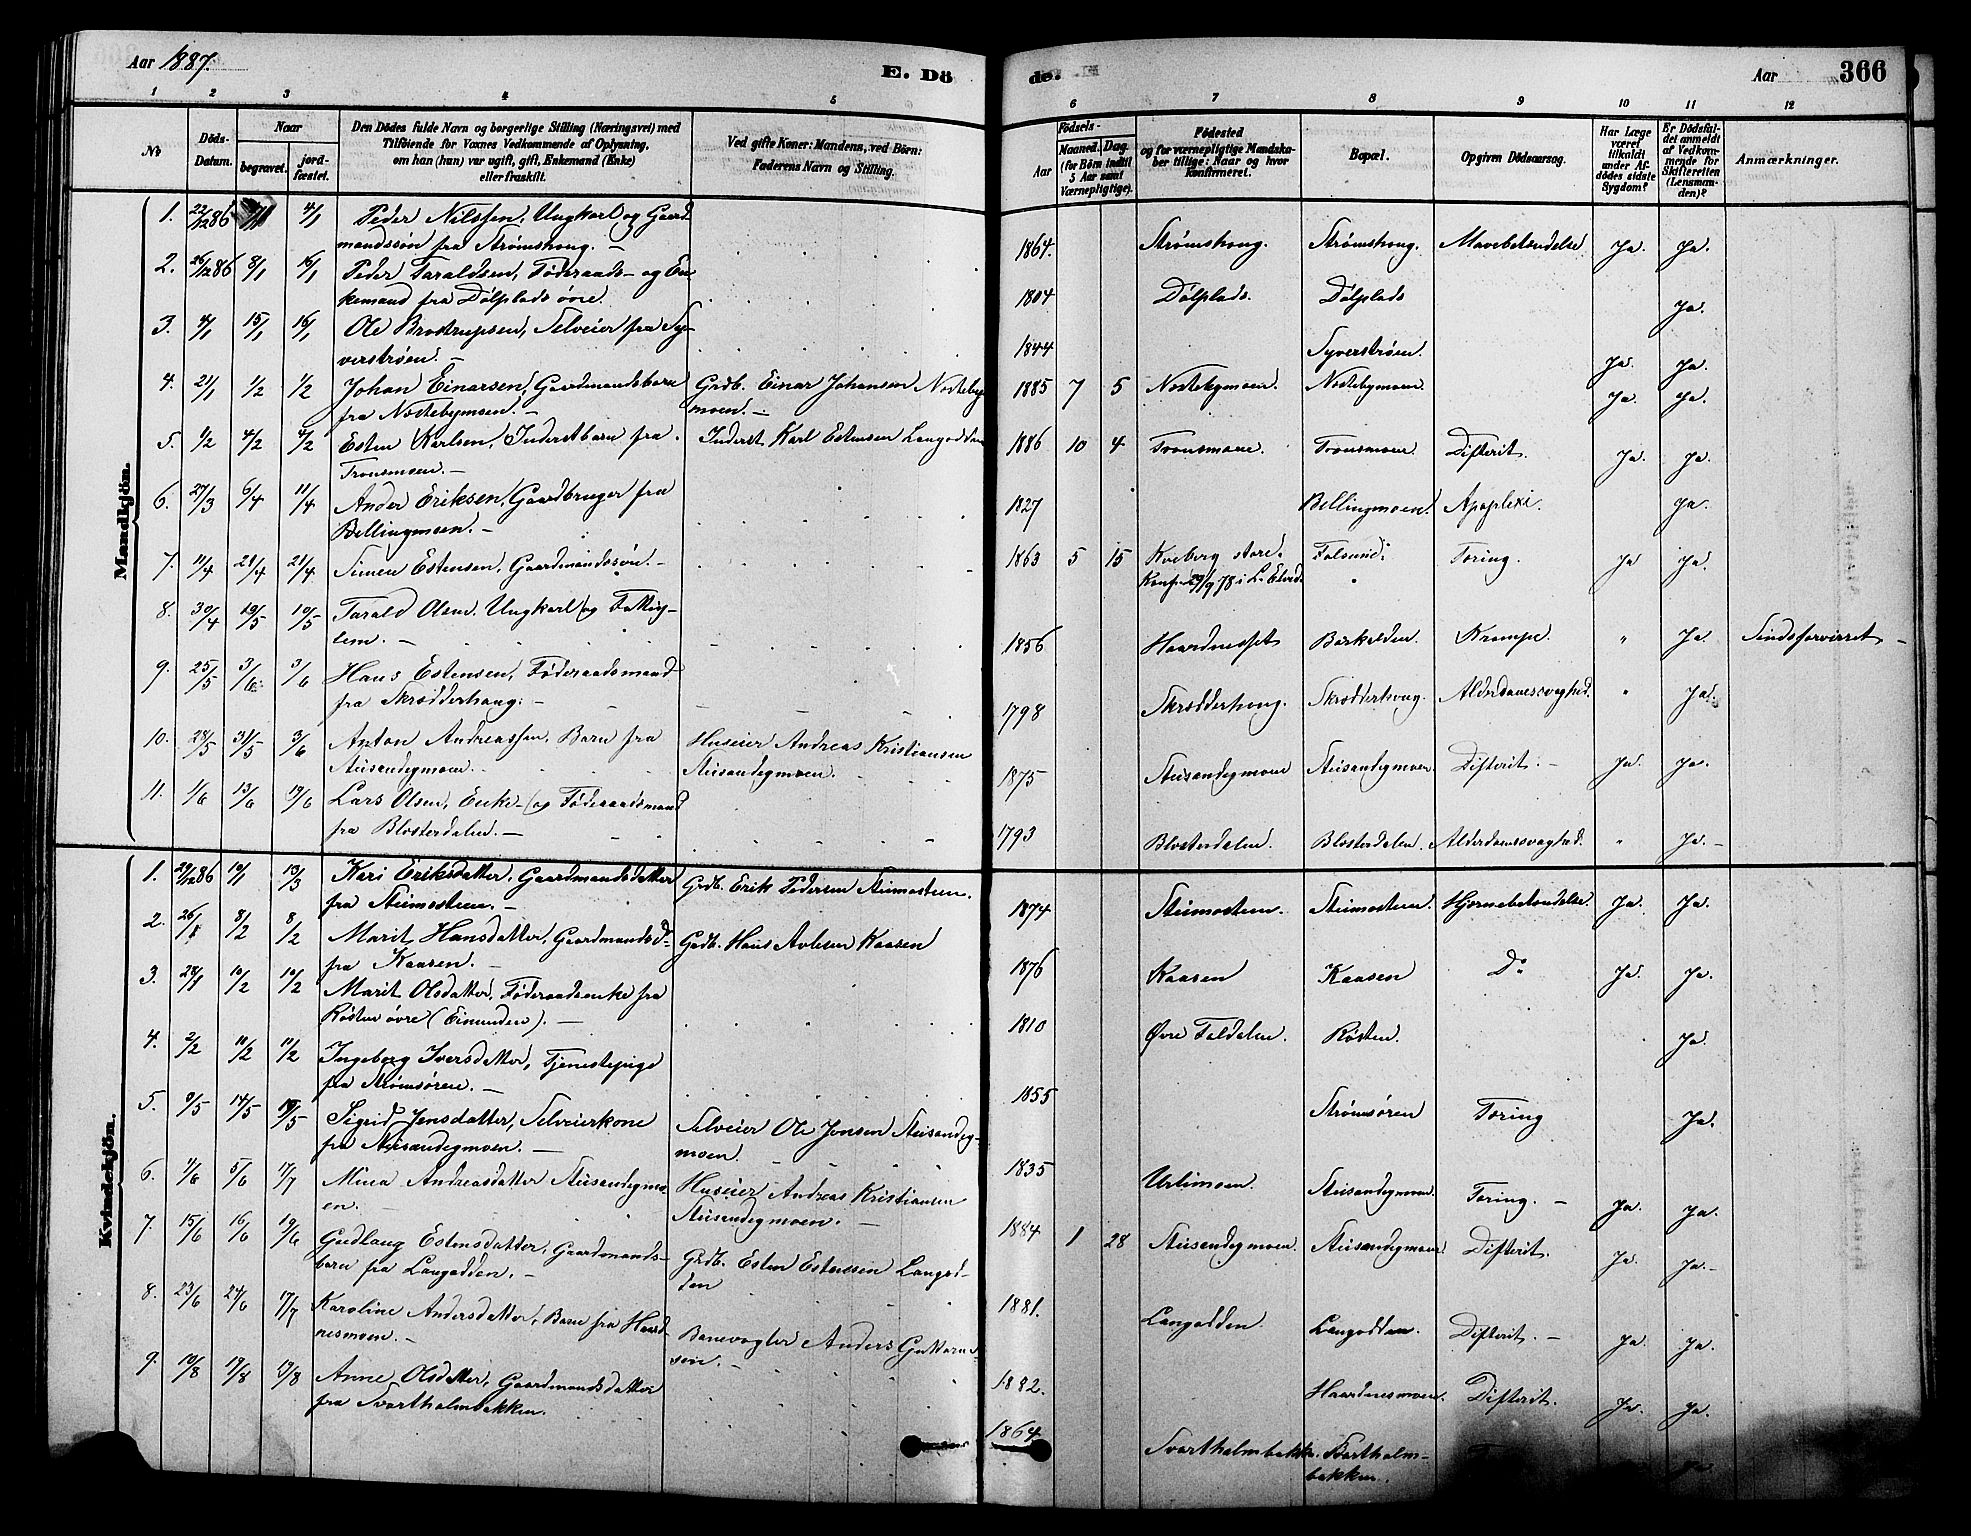 Aar 1887. E. Dö
de. Aar 366
1 2 3 4 5 6 7 8 9 10 11 12
No
Döds-Datum.
Naar begravet. jordfæstet.
Den Dödes fulde Navn og borgerlige Stilling (Næringsvei) med Tilföiende for Voxnes Vedkommende af Oplysning, om han (hun) var ugift, gift, Enkemand (Enke) eller fraskilt.
Ved gifte Koner: Mandens, ved Börn: Faderens Navn og Stilling.
Födsels- Aar Maaned. Dag. (for Börn indtil 5 Aar samt Værnepligtige).
Födested og for værnepligtige Mandskaber tillige: Naar og hvor konfirmeret.
Bopæl.
Opgiven Dödsaarsag.
Har Læge været tilkaldt under Afdödes sidste Sygdom?
Er Dödsfaldet anmeldt af Vedkommende for Skifteretten (Lensmanden)?
Anmærkninger.
Mandkjön.
1. 22/12 86 4/1 Peder Nilssen, Ungkarl og Gaardmandssøn fra Strømshaug. — 1864. Strømshaug. Strømshaug. Mavebetændelse Ja. Ja.
2. 26/12 86 8/1 16/1 Peder Taraldsen, Føderaads- og Enkemand fra Dølplads øvre. 1804 Dølplads. Dølplads Ja.
3. 4/1 15/1 16/1 Ole Brostrupsen, Selveier fra Syverstrøen. — 1844 Syverstrøen. Ja. Ja.
4. 21/1 1/2 1/2 Johan Einarsen, Gaardmandsbarn fra Nordebymoen. — Grdb. Einar Johansen Nordebymoen. — 1885 7 5 Nordebymoen. Nordebymoen. Ja. Ja.
5. 1/2 4/2 4/2 Esten Karlsen, Inderstbarn fra Tronsmoen. — Inderst Karl Estensen Langodden 1886 10 4 Tronsmoen. Tronsmoen. Difterit. Ja. Ja.
6. 27/3 6/4 11/4 Ander Eriksen, Gaardbruger fra Bellingmoen. — 1827 Bellingmoen. Apoplexi. Ja.
7. 11/4 21/4 21/4 Simen Estensen, Gaardmandssøn. — 1863 5 15 Kveberg store. Konf. 29/9 78 i L. Elvedal Folsund. Tæring. Ja Ja.
8. 30/4 19/5 19/5 Tarald Olsen, Ungkarl og Fattiglem. — 1856 Haardnesset Borkolden. Krampe. " Ja. Sindsforvirret —
9. 25/5 3/6 3/6 Hans Estensen, Føderaadsmand fra Skrædderhaug. — 1798 Skrædderhaug. Skrædderhaug. Alderdomssvaghed. " Ja.
10. 28/5 31/5 3/6 Anton Andreassen, Barn fra Steisandegmoen. Huseier Andreas Kristiansen Steisandegmoen. 1875 Steisandegmoen Steisandegmoen. Difterit. — Ja. Ja.
11. 1/6 13/6 19/6 Lars Olsen, Enke- og Føderaadsmand fra Blosterdalen. — 1793 Blosterdalen. Blosterdalen. Alderdomssvaghed. " Ja. —
Kvindekjön.
1. 29/12 86 10/1 13/3 Kari Eriksdatter, Gaardmandsdatter fra Steimosteen. — Grdb. Erik Pedersen Steimosteen. 1874 Steimosteen. Steimosteen. Hjernebetændelse Ja. Ja.
2. 26/1 8/2 8/2 Marit Hansdatter, Gaardmandsd. fra Kaasen. — Grdb. Hans Kaasen 1876 Kaasen Kaasen Do Ja. Ja.
3. 28/1 10/2 10/2 Marit Olsdatter, Føderaadsenke fra Røsten øvre (Eimunden). — 1810 Øvre Foldalen. Røsten. Ja.
4. 2/2 11/2 11/2 Ingeborg Iversdatter, Tjenestepige fra Strømsøren. — 1855 Strømsøren Tæring Ja.
5. 9/5 14/5 19/5 Sigrid Jonsdatter, Selveierkone fra Steisandegmoen. — Selveier Ole Jonsen Steisandegmoen. 1835 Urlimoen. Steisandegmoen. Tæring. — Ja. Ja.
6. 1/6 5/6 17/7 Mina Andreasdatter Steisandegmoen. — Huseier Andreas Kristiansen Steisandegmoen. — 1884 1 28 Steisandegmoen. Steisandegmoen. Difterit. Ja. Ja. —
7. 15/6 16/6 19/6 Gudlaug Estensdatter, Gaardmandsbarn fra Langodden. — Grdb. Esten Estensen Langodden 1881. Langodden. Langodden. Difterit. — Ja. Ja.
8. 23/6 24/6 17/7 Karoline Andersdatter, Barn fra Haardnesmoen. — Banevogter Anders Guttormsen. — 1882. Haardnesmoen. Difterit. Ja. Ja.
9. 10/8 19/8 19/8 Anne Olsdatter, Gaardmandsdatter fra Svartholmbakken. 1864 Svartholmbakk. Svartholmbakken. Ja